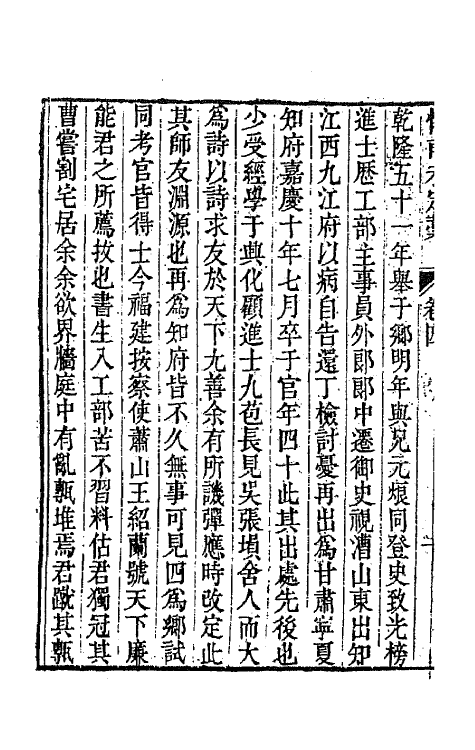 卷四
乾隆五十一年舉于鄉明年與兄元煩同登史致光榜
進士歷工部主事員外郎郎中遷御史視漕山東出知
江西九江府以病自告還丁檢討憂再出為甘肅寧夏
知府嘉慶十年七月卒于官年四十此其出處先後也
少受經學于興化顧進士九苞長見吳張塤舍人而大
為詩以詩求友於天下尤善余有所譏彈應時改定此
其師友淵源也再為知府皆不久無事可見四為鄉試
同考官皆得士今福建按察使蕭山王紹蘭號天下廉
能君之所薦拔也書生入工部苦不習料估君獨冠其
曹嘗割宅居余余欲界牆庭中有亂甎堆焉君蹴其甎